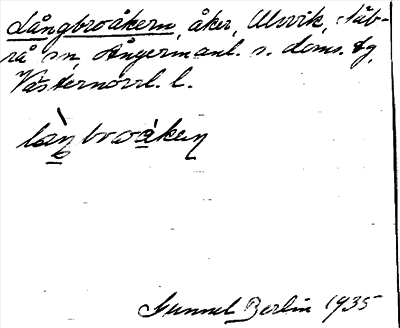 Långbroåkern, åker, Ulvvik, Säb-
rå sn, Ångermanl. s. doms. tg,
Västernorrl. l.
làŋbroåkeɳ
Gunnel Berlin 1935